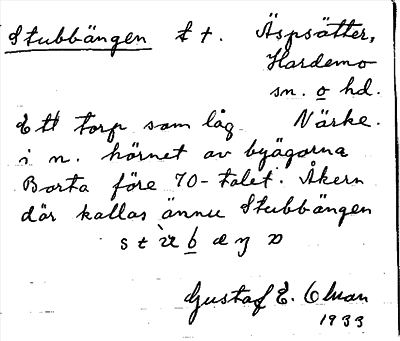 Stubbängen t t. Äspsätter,
Hardemo
sn. o hd.
Närke.
Ett torp som låg
i n. hörnet av byägorna
Borta före 70-talet. Åkern
där kallas ännu Stubbängen
Gustaf E. Olman
1933